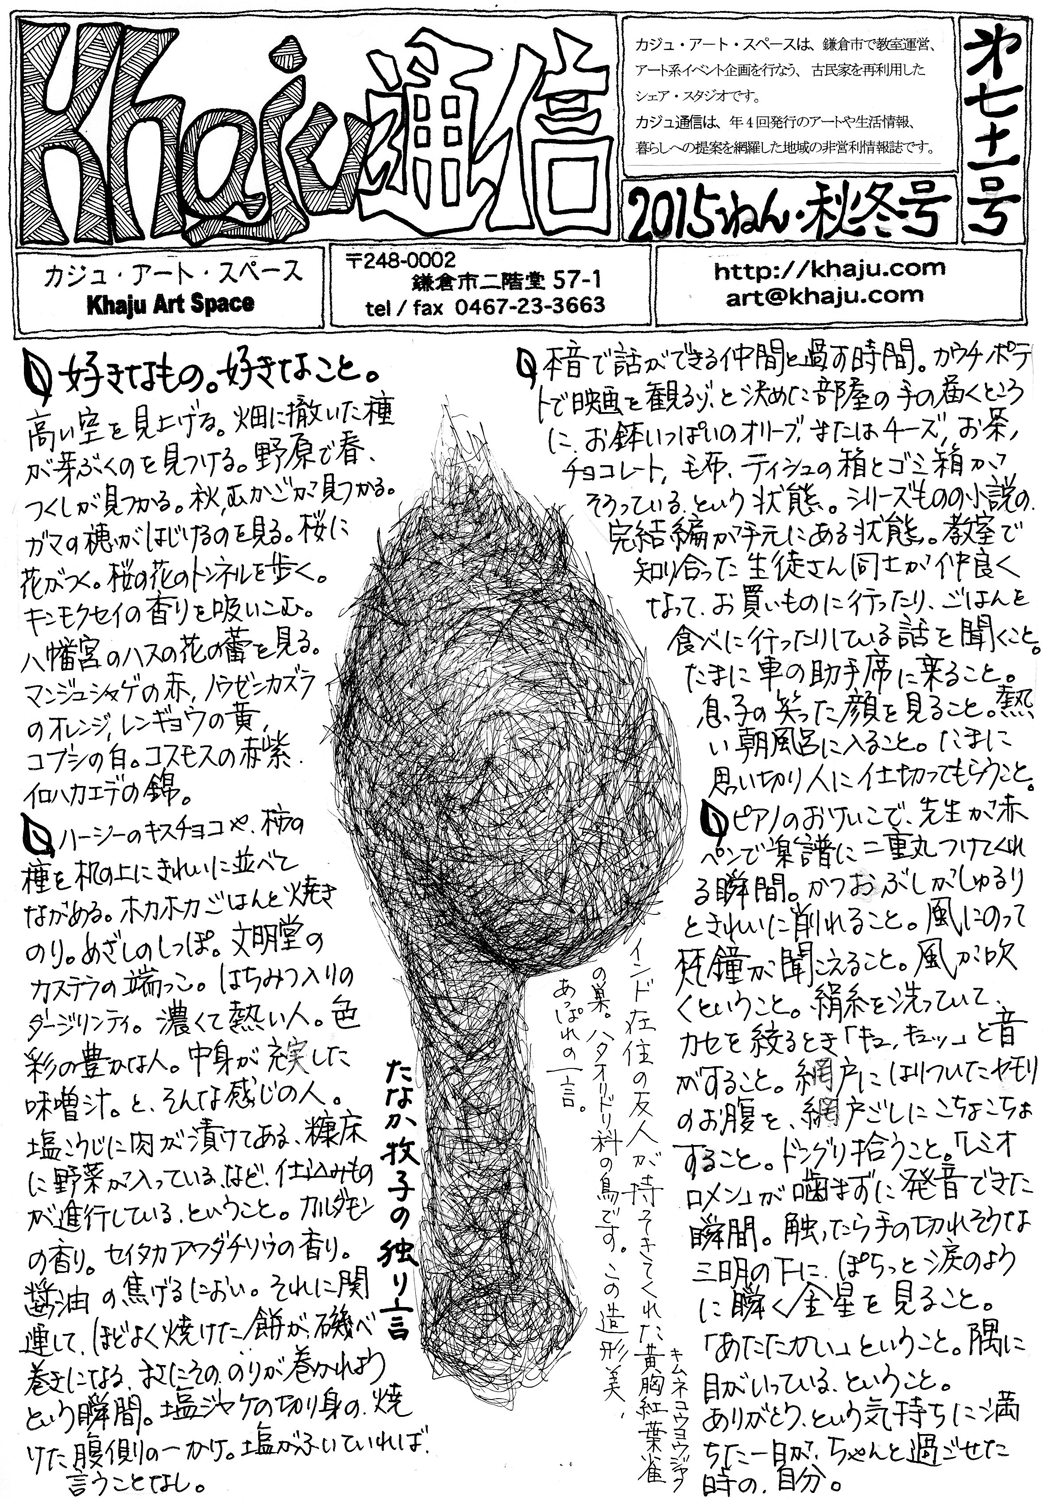 Khaju通信
カジュ・アート・スペースは、鎌倉市で教室運営、
アート系イベント企画を行なう、古民家を再利用した
シェア・スタジオです。
カジュ通信は、年4回発行のアートや生活情報、
暮らしへの提案を網羅した地域の非営利情報誌です。
2015ねん・秋冬号
第七十一号
カジュ・アート・スペース
Khaju Art Space
〒248-0002
鎌倉市二階堂 57-1
tel / fax 0467-23-3663
http://khaju.com
art@khaju.com
好きなもの。好きなこと。
高い空を見上げる。畑に撒いた種
が芽ぶくのを見つける。野原で春、
つくしが見つかる。秋、むかごが見つかる。
ガマの穂がはじけるのを見る。桜に
花がつく。桜の花のトンネルを歩く。
キンモクセイの香りを吸いこむ。
八幡宮のハスの花の蕾を見る。
マンジュシャゲの赤、ノウゼンカズラ
のオレンジ、レンギョウの黄、
コブシの白。コスモスの赤紫、
イロハカエデの錦。
ハーシーのキスチョコや、柿の
種を机の上にきれいに並べて
ながめる。ホカホカごはんと焼き
のり。めざしのしっぽ。文明堂の
カステラの端っこ。はちみつ入りの
ダージリンティ。濃くて熱い人。色
彩の豊かな人。中身が充実した
味噌汁。と、そんな感じの人。
塩こうじに肉が漬けてある、糠床
に野菜が入っている、など、仕込みもの
が進行している、ということ。カルダモン
の香り。セイタカアワダチソウの香り。
醤油の焦げるにおい。それに関
連して、ほどよく焼けた餅が、磯べ
巻きになる、まさにその、のりが巻かれよう
という瞬間。塩ジャケの切り身の、焼
けた腹側の一かけ。塩がふいていれば、
言うことなし。
本音で話ができる仲間と過す時間。カウチポテ
トで映画を観るぞ、と決めた部屋の手の届くところ
に、お鉢いっぱいのオリーブ、またはチーズ、お茶、
チョコレート、毛布、ティシュの箱とゴミ箱がそ
そろっている、という状態。シリーズものの小説の、
完結編が手元にある状態。教室で
知り合った生徒さん同士が仲良く
なって、お買いものに行ったり、ごはんを
食べに行ったりしている話を聞くこと。
たまに車の助手席に来ること。
息子の笑った顔を見ること。熱
い朝風呂に入ること。たまに
思い切り人に仕切ってもらうこと。
ピアノのおけいこで、先生が赤
ペンで楽譜に二重丸つけてくれ
る瞬間。かつおぶしがしゅるり
ときれいに削れること。風にのって
梵鐘が聞こえること。風が吹
くということ。絹糸を洗っていて、
カセを絞るとき「キュ、キュッ」と音
がすること。網戸にはりついたヤモリ
のお腹を、網戸ごしにこちょこちょ
すること。ドングリ拾うこと。「レミオ
ロメン」が噛まずに発音できた
瞬間。触ったら手の切れそうな
三日月の下に、ぽちっと涙のよう
に瞬く金星を見ること。
「あたたかい」ということ。隅に
目がいっている、ということ。
ありがとう、という気持ちに満
ちた一日が、ちゃんと過ごせた
時の、自分。
たなか牧子の独り言
インド在住の友人が持ってきてくれた黄胸紅葉雀
キムネコウヨウジャク
の巣。ハタオリドリ科の鳥です。この造形美、
あっぱれの一言。